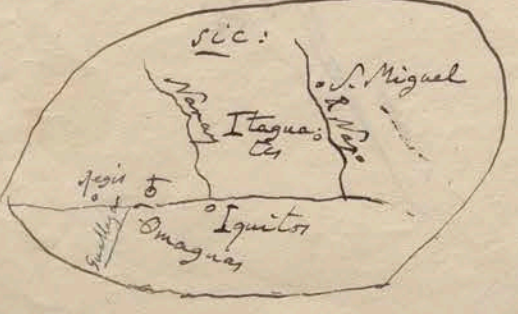 sic:
S. Miguel
Nanay
R Napo
Itagua
tes
Regis
Iquitos
Omaguas